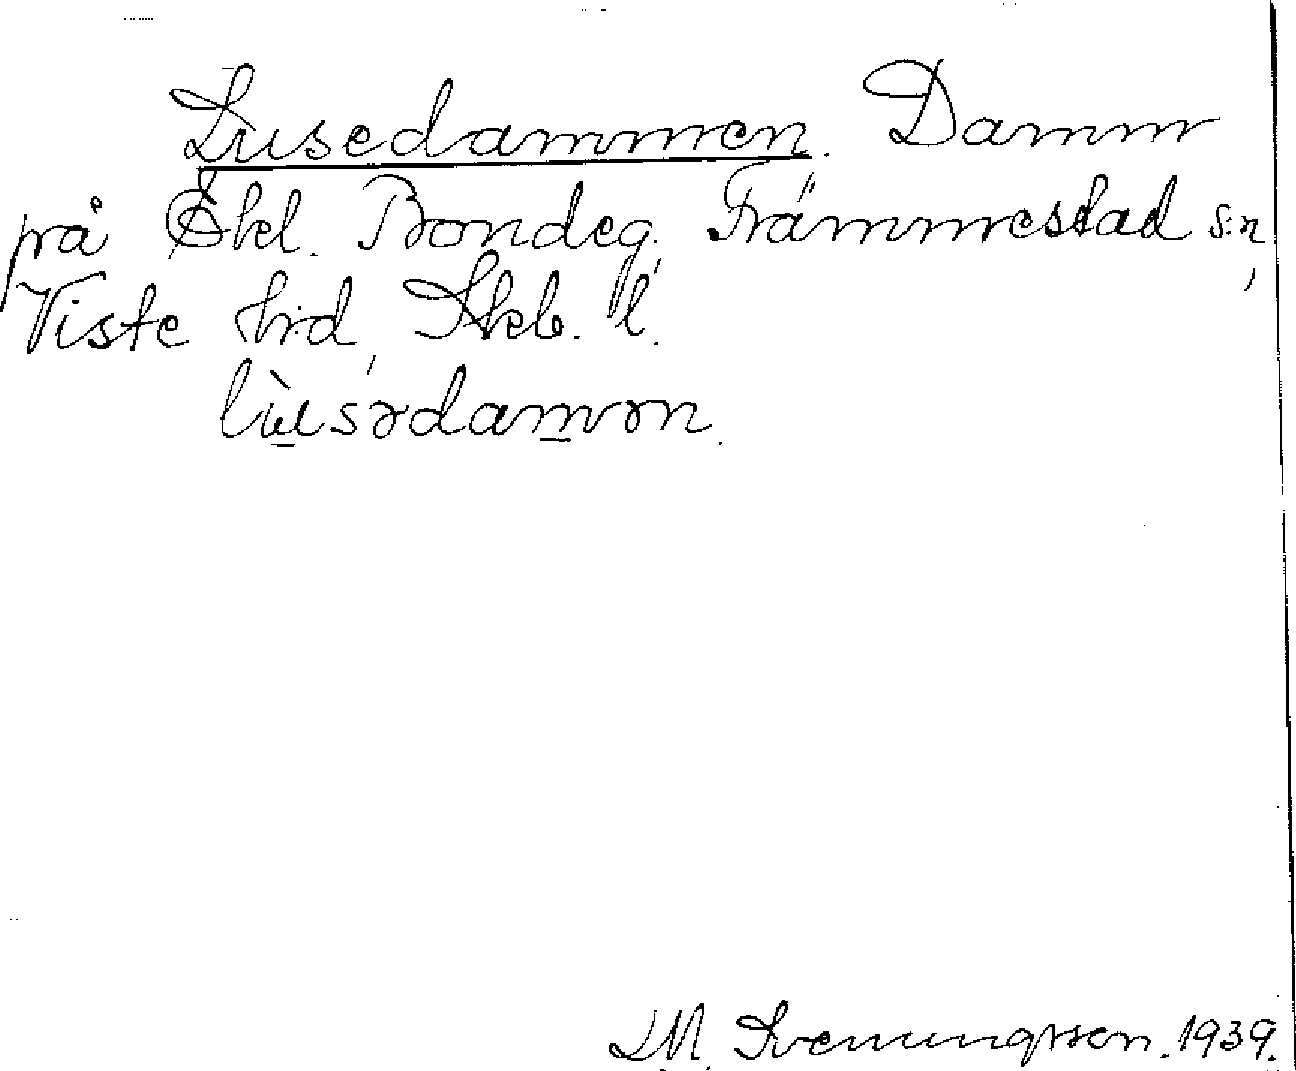 Lusedammen. Damm
på Skl. Bondeg. Främmestad s:n,
Viste hd, Skb. l.
lùsədamən.
S.M. Svenungsson. 1939.